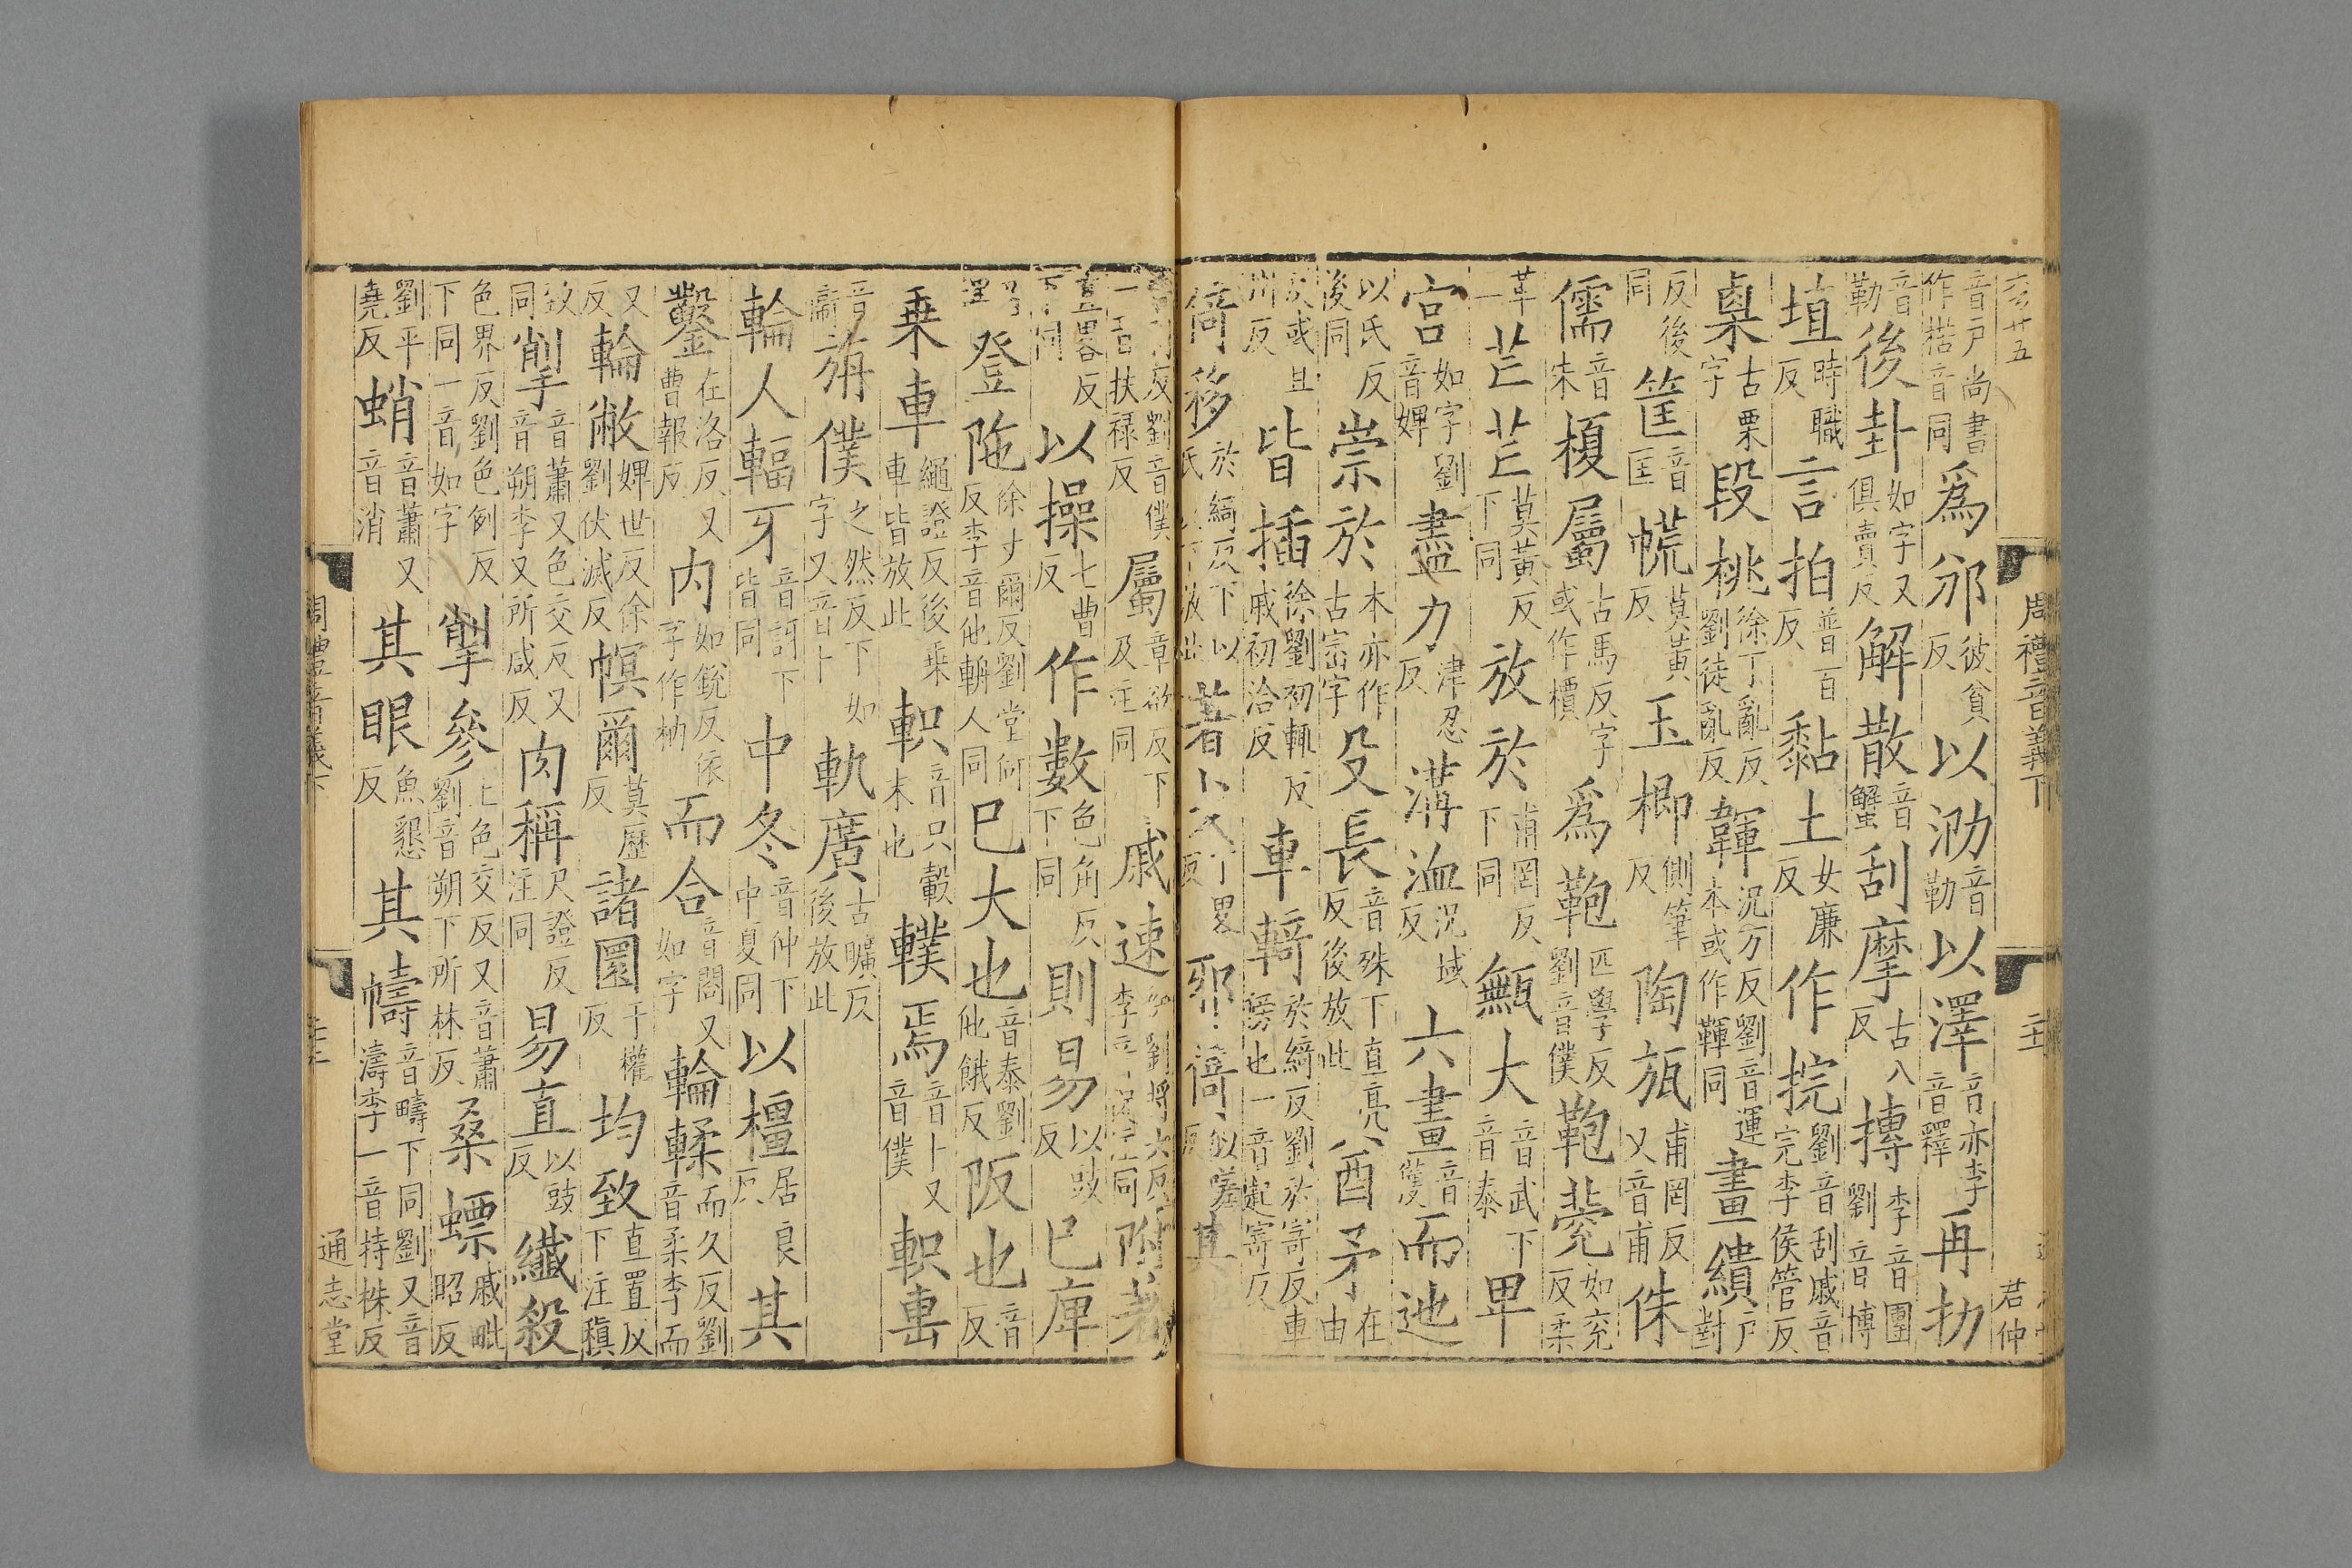 交廿五
周禮音義下
君仲
音戶尚書作楛音同爲邠彼貧反以泐音勒以澤音亦李音釋再扐
音勒後卦如字又俱賣反解散音蟹刮摩古八反摶李音團劉音博
埴時職反言拍普百反黏土女廉反作捖劉音刮戚音完李侯管反
㮚古栗字段桃徐丁亂反劉徒亂反韗況万反劉音運本或作鞸同畫繢戶對
反後同筐音匡㡆莫黃反玉楖側筆反陶瓬甫罔反又音甫侏
儒音朱榎屬古馬反字或作檟爲鞄匹學反劉音僕鞄㼱如兗反柔
革一芒芒莫黃反下同放於甫罔反下同甒大音武下音泰卑
宮如字劉音婢盡力津忍反溝洫況域反六畫音獲而迆
以氏反後同崇於本亦作古崈字殳長音殊下直亮反後放此酋矛在由
反或且州反皆插徐劉初輒反戚初洽反車輢於綺反劉於寄反車旁也一音寄反
倚移於綺反下以氏反下放此著
反劉音僕一音扶祿反屬章欲反下及注同戚速劉將六反李附著
直畧反下同以操七曹反作數色角反下同則易以豉反巳庳
登阤徐丈爾反劉堂何反李音他輈人同巳大也音泰劉他餓反阪也音反
乗車繩證反後乗車皆放此軹音只轂末也轐焉音卜又音僕軹軎
音旃僕之然反下如字又音卜軌廣古曠反後放此
輪人輻牙音訝下皆同中冬音仲下中夏同以橿居良反其
鑿在洛反又曹報反内如銳反依字作枘而合音閤又如字輪輮而久反劉音柔李而
又反輪敝婢世反徐劉伏滅反幎爾莫歷反諸圜于權反均致直置反下注稹
致同掣音蕭又色交反又音朔李又所咸反肉稱尺證反注同易直以豉反纖殺
色界反劉色例反下同一音如字掣參上色交反又音蕭劉音朔下所林反桑螵戚毗昭反
劉平堯反蛸音蕭又音消其眼魚懇反其幬音疇下同劉又音濤李一音持株反
通志堂